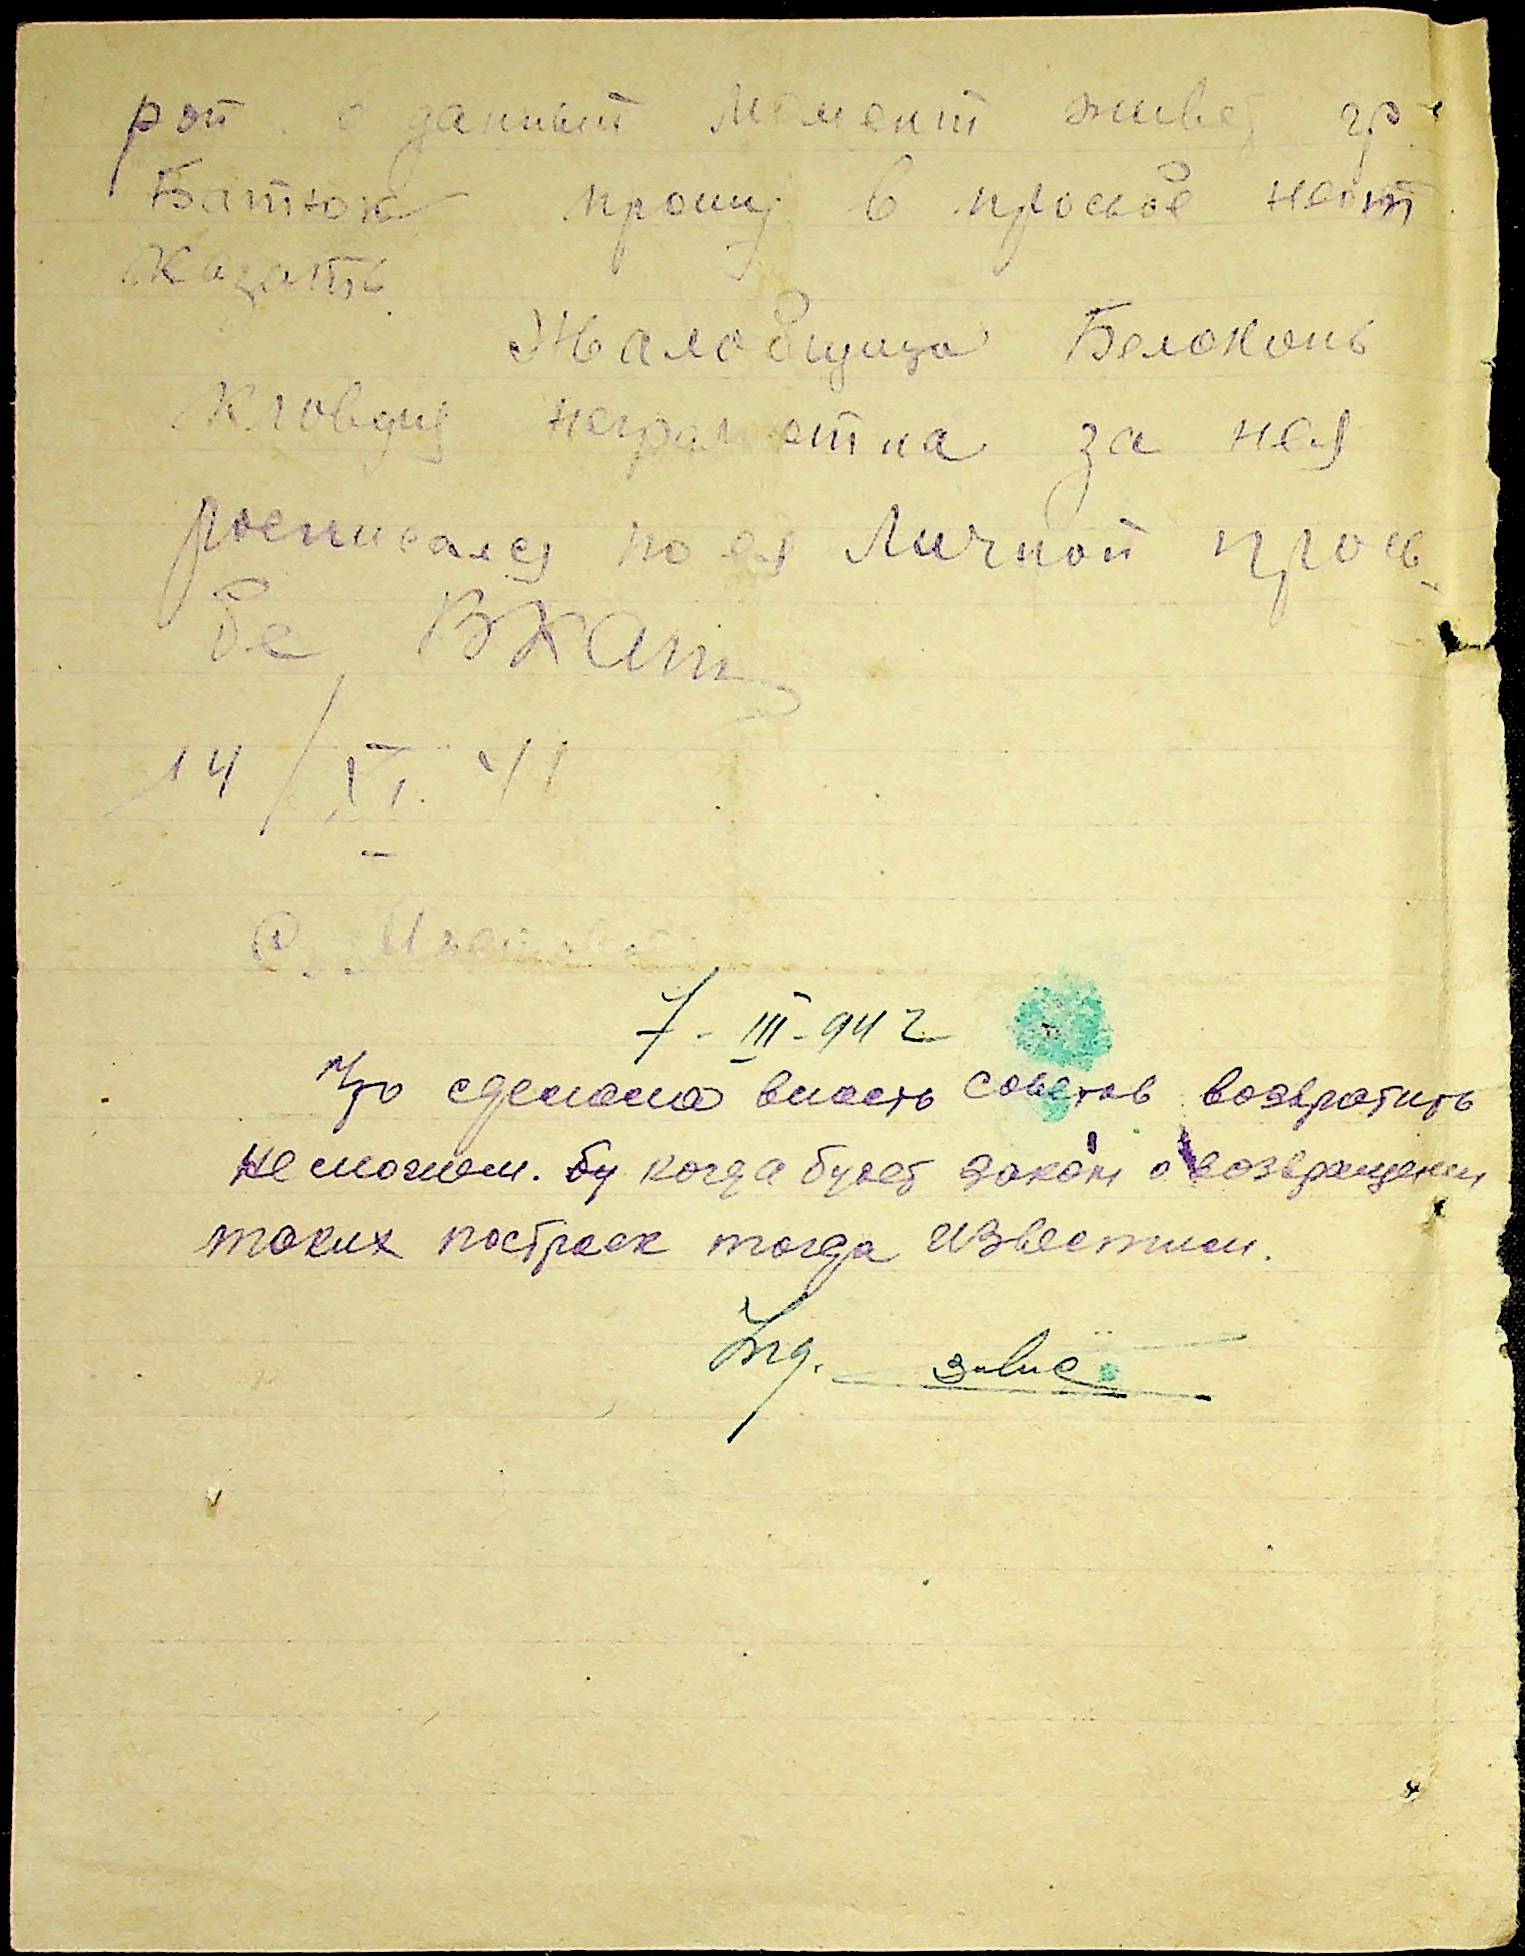 рой в данный момент живет гр.
Батюк прошу в просьбе неот
казать
Жалобщица Белоконь
Кловдия неграмотна за нея
росписался по ея личной прось-
бе ВКат
14/XI 41
7-III-942
Что сделала власть советов возвратить
не можем. бу когда будет закон о возвращении
таких построек тогда известим.
Ing.